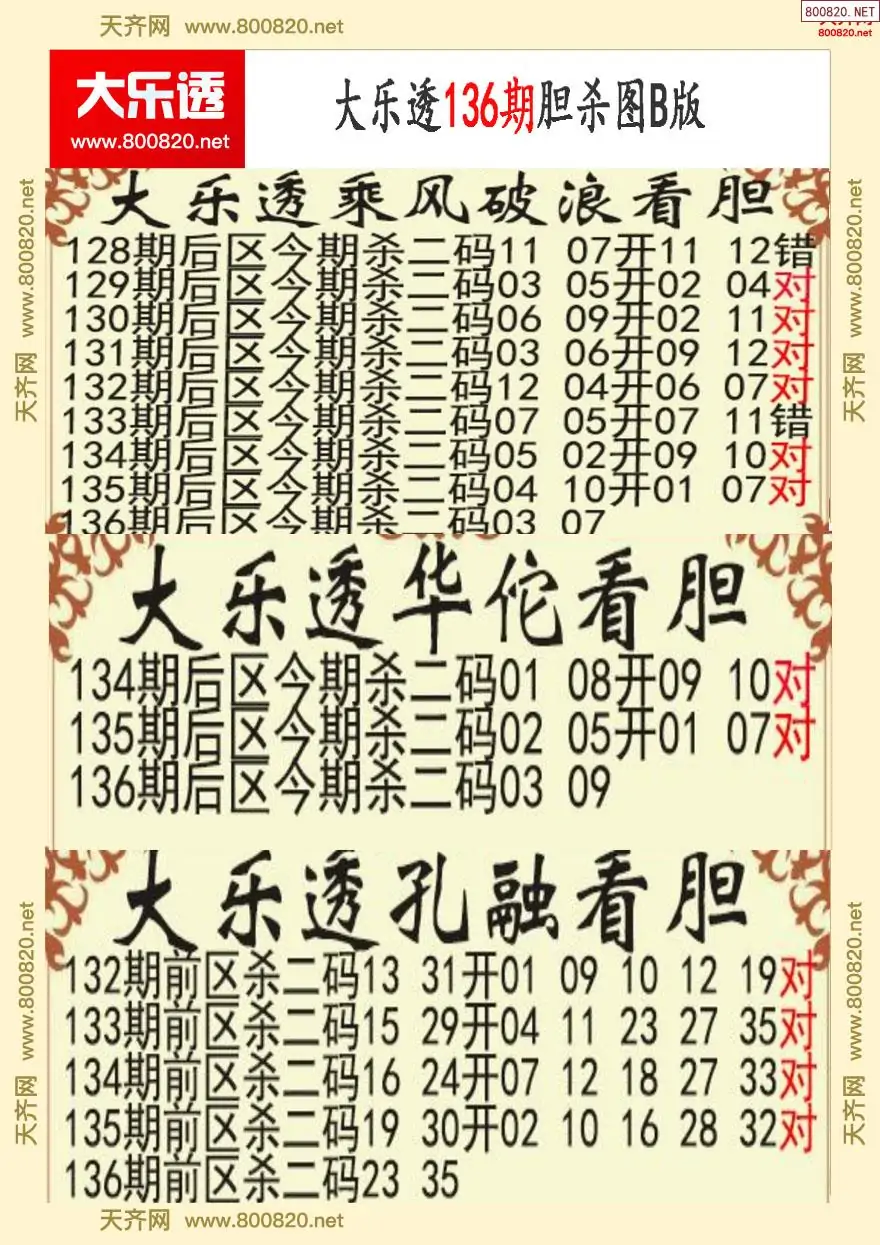 天齐网 www.800820.net
800820.NET
800820.net
大乐透
www.800820.net
大乐透136期胆杀图B版
大乐透乘风破浪看胆
128期后区今期杀二码11 07开11 12错
129期后区今期杀二码03 05开02 04对
130期后区今期杀二码06 09开02 11对
131期后区今期杀二码03 06开09 12对
132期后区今期杀二码12 04开06 07对
133期后区今期杀二码07 05开07 11错
134期后区今期杀二码05 02开09 10对
135期后区今期杀二码04 10开01 07对
136期后区今期杀二码03 07
大乐透华佗看胆
134期后区今期杀二码01 08开09 10对
135期后区今期杀二码02 05开01 07对
136期后区今期杀二码03 09
大乐透孔融看胆
132期前区杀二码13 31开01 09 10 12 19对
133期前区杀二码15 29开04 11 23 27 35对
134期前区杀二码16 24开07 12 18 27 33对
135期前区杀二码19 30开02 10 16 28 32对
136期前区杀二码23 35
天齐网 www.800820.net
天齐网 www.800820.net
天齐网 www.800820.net
天齐网 www.800820.net
天齐网 www.800820.net